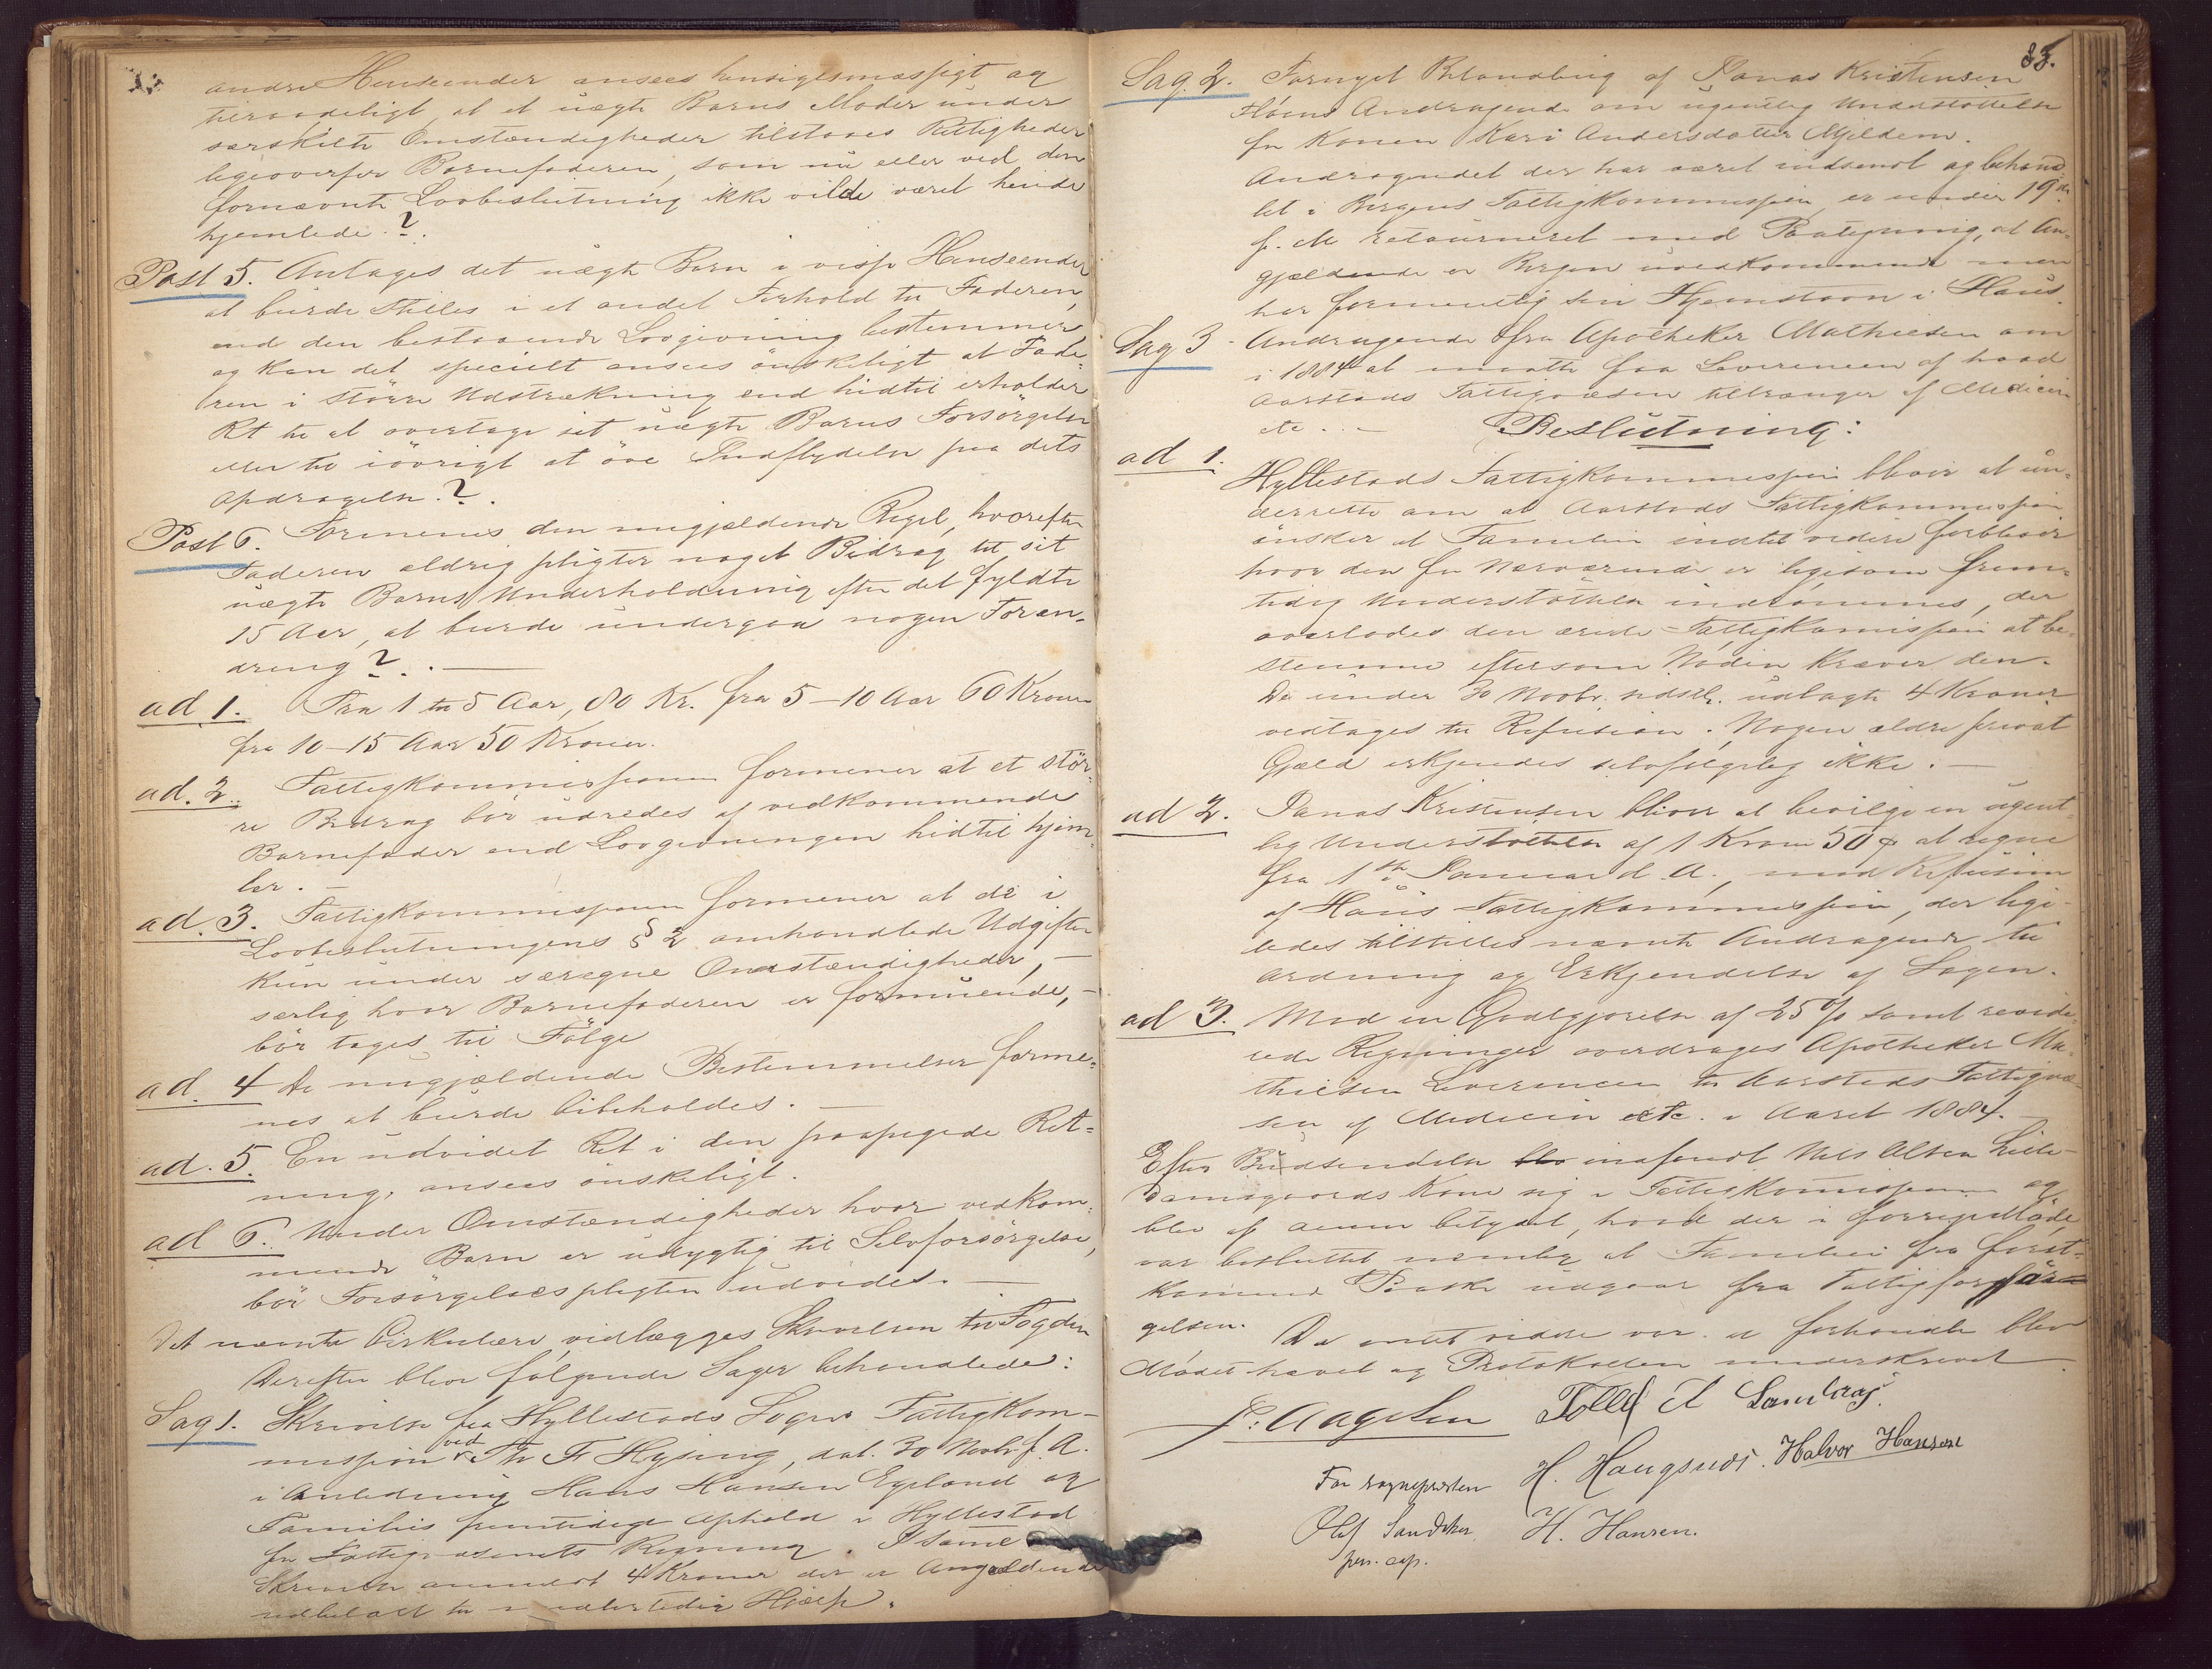 andre Henseender ansees hensigtsmæssigt og
tilraadeligt, at et uægte Barns Moder under
særskilte Omstændigheder tilstaaes Rettigheder
ligeoverfor Barnefaderen, som nu eller ved den
fornævnte Lovbeslutning ikke vilde været hende
hjemlede?.
Post 5. Antages det uægte Barn i visse Henseender
at burde stilles i et andet Forhold til Faderen,
end den bestaaende Lovgivning bestemmer
og kan det specielt ansees ønskeligt at Fade-
ren i større Udstrækning end hidtil erholder
Ret til at overtage sit uægte Barns Forsørgelse
eller til iøvrigt at øve Indflydelse paa dets
Opdragelse?.
Post 6. Formenes den nugjældende Regel, hvorefter
Faderen aldrig pligter noget Bidrag til sit
uægte Barns Underholdning efter det fyldte
15 Aar, at burde undergaa nogen Foran-
dring?. —
ad 1. Fra 1 til 5 Aar, 80 Kr. fra 5–10 Aar 60 Kroner
fra 10–15 Aar 50 Kroner.
ad. 2. Fattigkommissionen formener at et stør-
re Bidrag bør udredes af vedkommende
Barnefader end Lovgivningen hidtil hjem-
ler. —
ad. 3. Fattigkommissionen formener at de i
Lovbeslutningens § 2 omhandlede Udgifter
kun under særegne Omstændigheder, —
særlig hvor Barnefaderen er formuende, —
bør tages til Følge
ad. 4 De nugjældende Bestemmelser forme-
nes at burde bibeholdes. —
ad. 5. En udvidet Ret i den paapegede Ret-
ning, ansees ønskeligt.
ad 6. Under Omstændigheder hvor vedkom-
mende Barn er udygtig til Selvforsørgelse,
bør Forsørgelsespligten udvides. —
Det nævnte Cirkulære vidlægges Skrivelsen til Fogden
Derefter blev følgende Sager behandlede:
Sag 1. Skrivelse fra Hyllestads Sogns Fattigkom-
mission ved Th F Hysing, dat. 30 Novbr. f. A.
i Anledning Hans Hansen Egeland og
Families fremtidige Ophold i Hyllestad
for Fattigvæsenets Regning. I samme
Skrivelse anmeldt 4 Kroner der er Angjældende
udbetalt til midlertidig Hjælp.
83.
Sag. 2. Fornyet Behandling af Jonas Kristensen
Fløens Andragende om ugentlig Understøttelse
for Konen Kari Andersdatter Mjeldem.
Andragendet der har været indsendt og behand-
let i Bergens Fattigkommission er under 19de
f. M retourneret med Paategning, at An-
gjældende er Bergen uvedkommende men
har formentlig sin Hjemstavn i Haus.
Sag 3 - Andragende fra Apotheker Mathiesen om
i 1884 at maatte faa Leverencen af hvad
Aarstads Fattigvæsen tiltrænger af Medicin
etc. — Beslutning:
ad 1. Hyllestads Fattigkommission bliver at un-
derrette om at Aarstads Fattigkommission
ønsker at Familien indtil videre forbliver
hvor den for Nærværende er ligesom frem-
tidig Understøttelse indrømmes, der
overlades den ærede Fattigkomission at be-
stemme eftersom Nøden kræver den.
De under 30 Novbr. sidstl. udlagte 4 Kroner
vedtages til Refusion. Nogen ældre privat
Gjæld erkjendes selvfølgelig ikke. —
ad 2. Jonas Kristensen bliver at bevilge en ugent-
lig Understøttelse af 1 Krone 50 ø at regne
fra 1ste Januar d. A., med Refusion
af Haus Fattigkommission, der lige-
ledes tilstilles nævnte Andragende til
Ordning og Erkjendelse af Sagen.
ad 3. Mod en Godtgjørelse af 25 % samt revide-
rede Regninger overdrages Apotheker Ma-
thiesen Leverencen til Aarstads Fattigvæ-
sen af Medicin etc. i Aaret 1884. —
Efter Budsendelse indfandt Nils Olsen Lille-
Damsgaards Kone sig i Fattigkommissionen og
blev af denne betydet, hvad der i forrige Møde
var besluttet nemlig at Familien fra først-
kommende Paaske udgaar fra Fattigforsør-
gelsen.
Da intet videre var at forhandle blev
Mødet hævet og Protokollen underskrevet
J. Aagesen Tollef A Landraas.
For sognepresten H. Haugsnes. Halvor Hansen
Olaf Sandaker H. Hansen.
pers. cap.